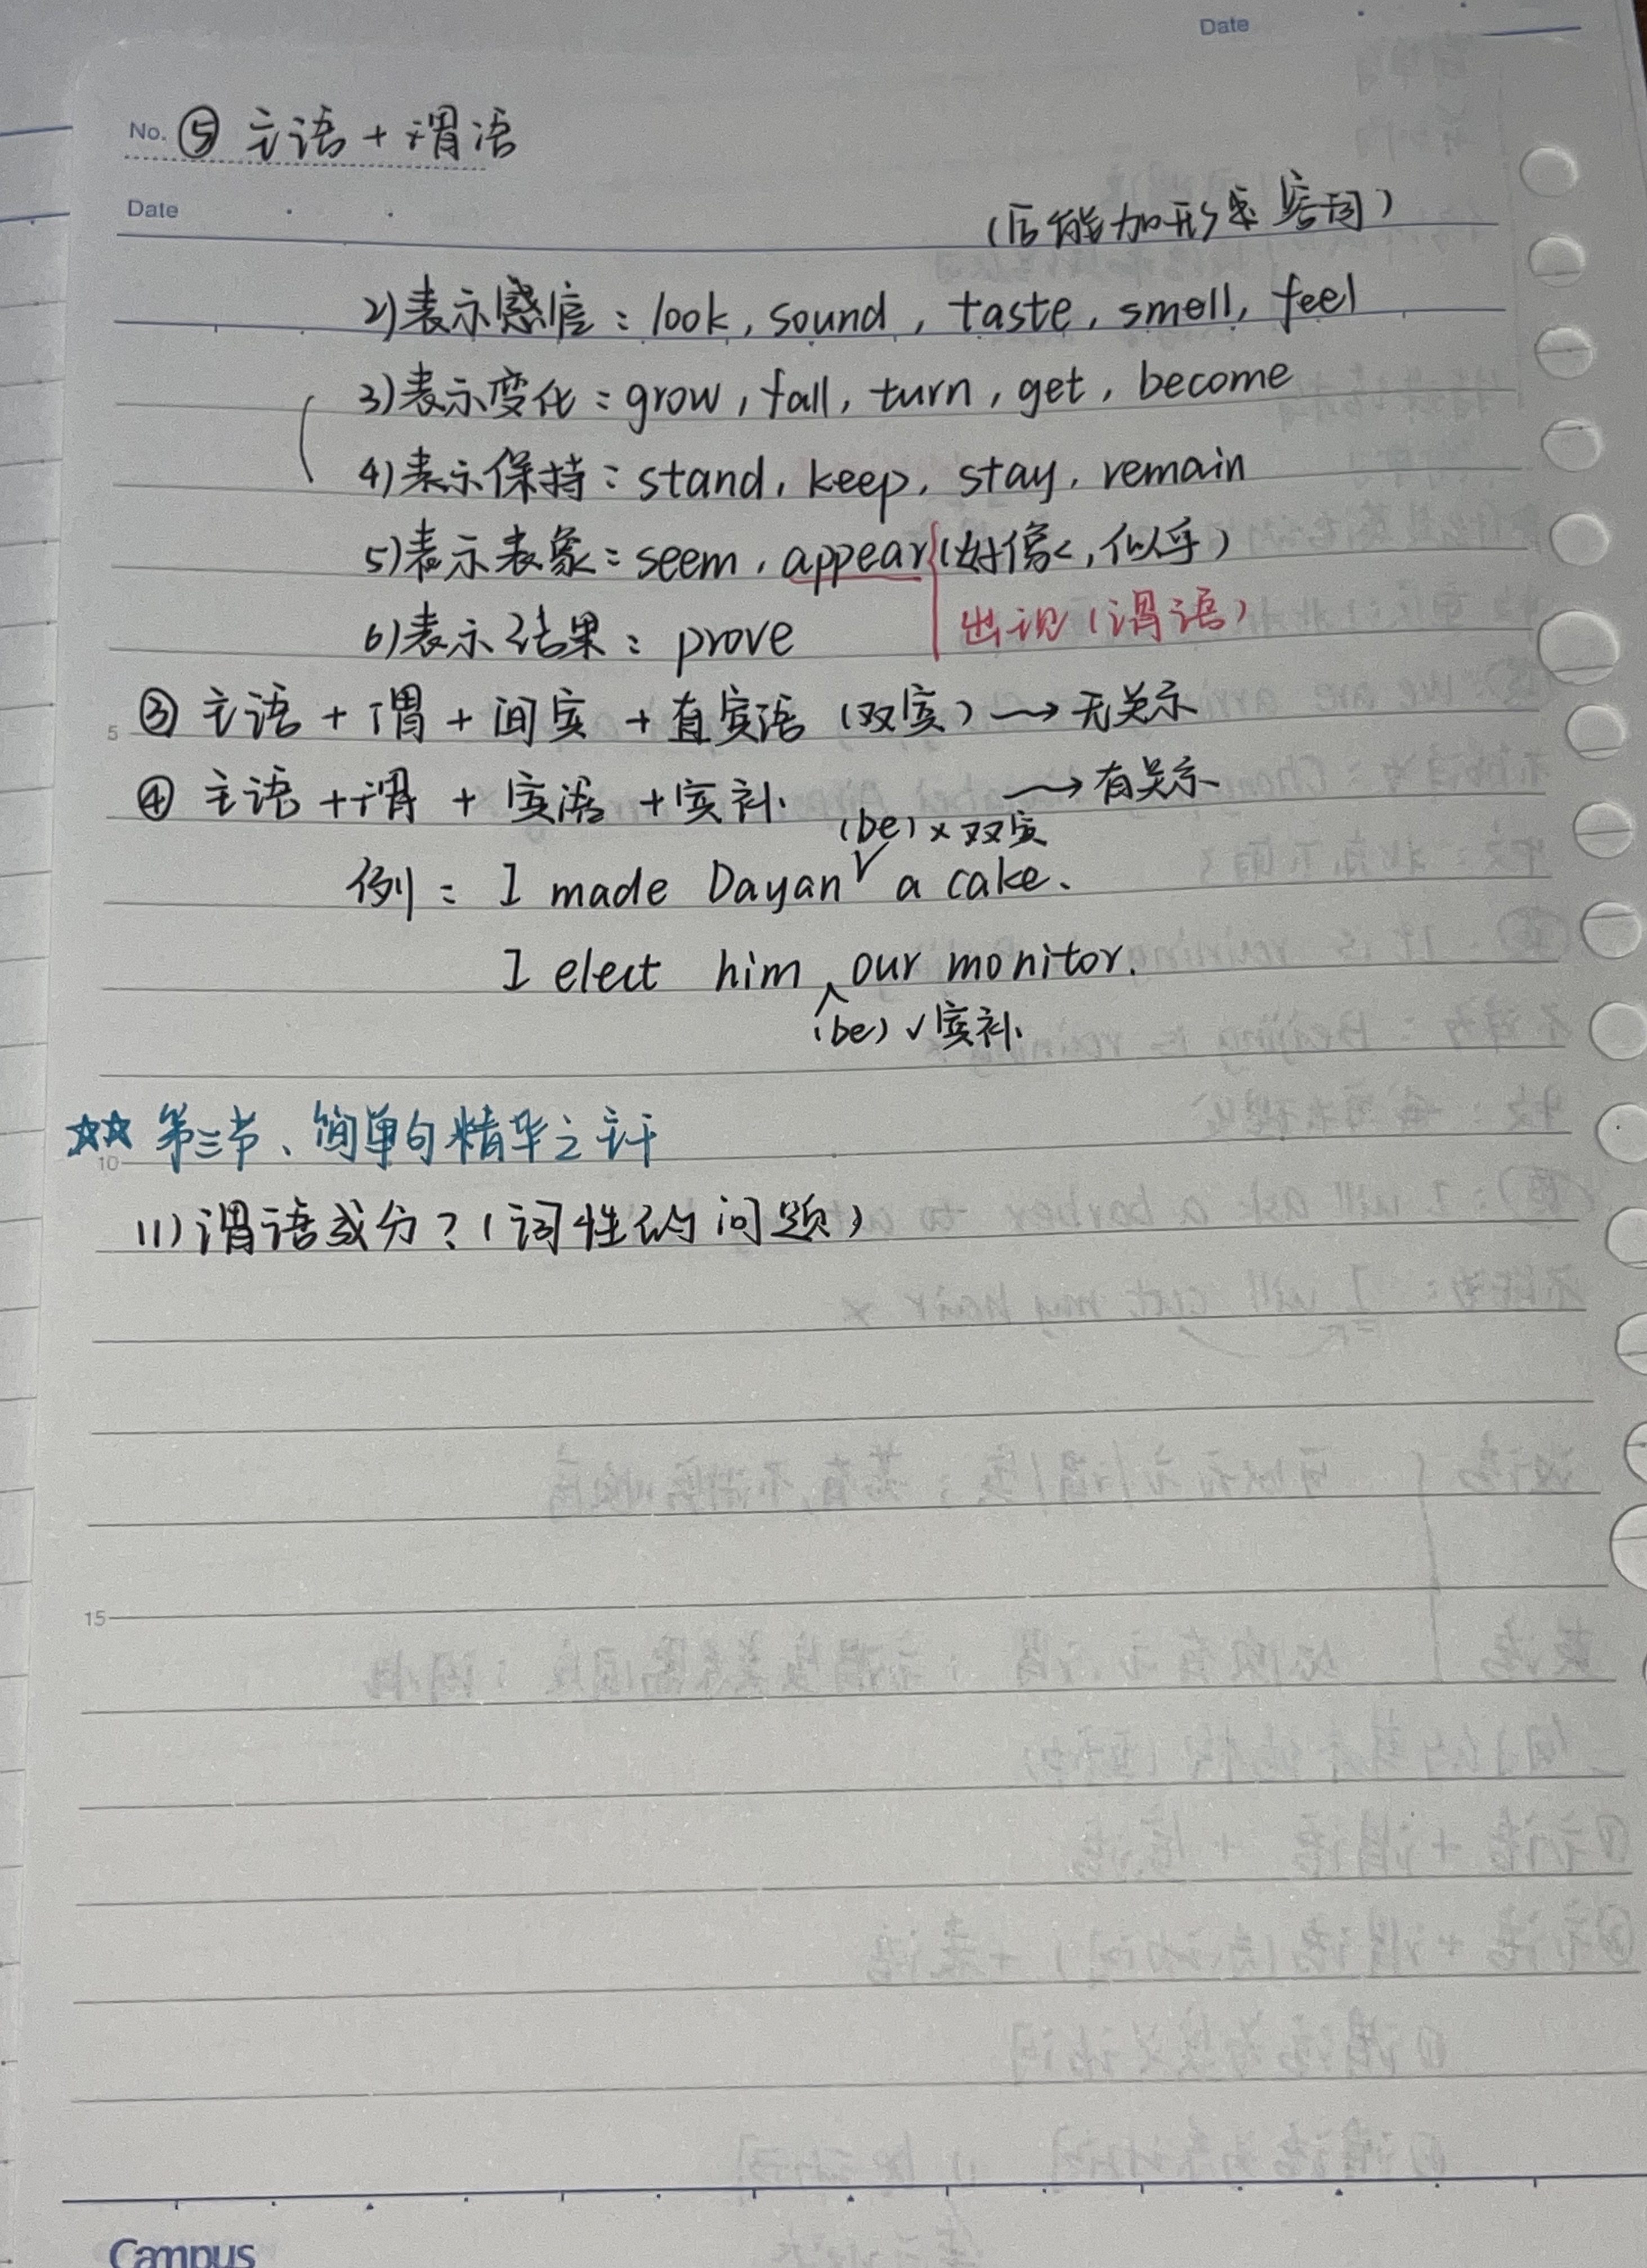 Date
No. ⑤ 主语 + 谓语
Date
(后能加形表容词)
2)表示感官：look, sound, taste, smell, feel
3)表示变化：grow, fall, turn, get, become
4)表示保持：stand, keep, stay, remain
5)表示表象：seem, appear (好像, 似乎)
出现 (谓语)
6)表示结果：prove
5 ③ 主语 + 谓 + 间宾 + 直宾语 (双宾) → 无关系
④ 主语 + 谓 + 宾语 + 宾补. → 有关系
(be) × 双宾
例：I made Dayan a cake.
I elect him our monitor.
(be) ✓ 宾补.
☆☆ 第三节、简单句精华之主干
10
(1) 谓语成分？(词性的问题)
15
Campus